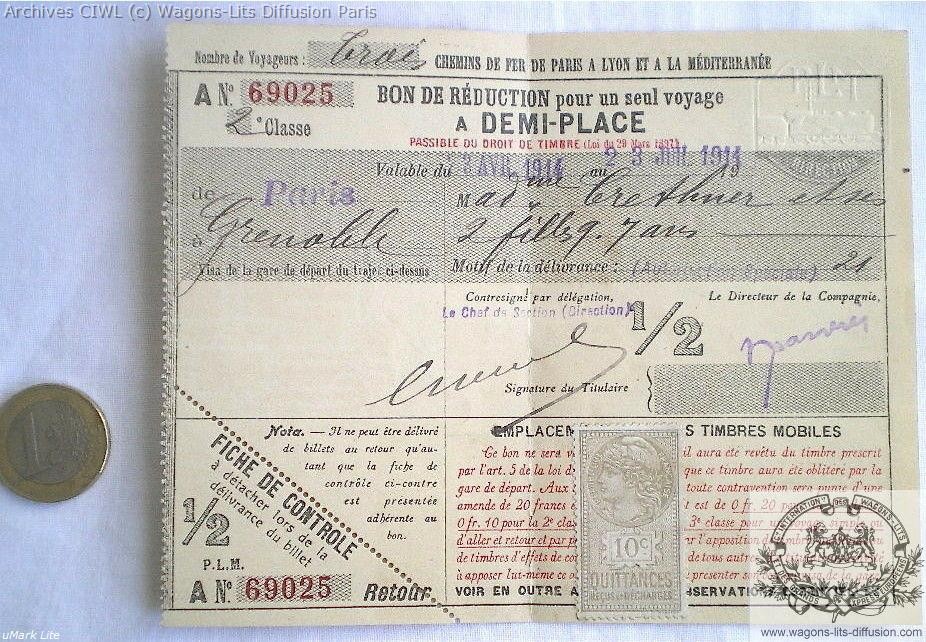 Archives CIWL (c) Wagons-Lits Diffusion Paris
Nombre de Voyageurs : Trois CHEMINS DE FER DE PARIS A LYON ET A LA MÉDITERRANÉE
A N° 69025 BON DE RÉDUCTION pour un seul voyage
2e Classe A DEMI-PLACE
PASSIBLE DU DROIT DE TIMBRE (Loi du 29 Mars 1897)
Valable du AVR. 1914 au 2 3 JUIL 1914 19
de Paris Mad me et ses
à Grenoble 2 filles 7 ans
Visa de la gare de départ du trajet ci-dessus Motif de la délivrance : 21
Contresigné par délégation, Le Directeur de la Compagnie,
Le Chef de Section (Direction)
1/2
Signature du Titulaire
Nota. — Il ne peut être délivré
de billets au retour qu'au-
tant que la fiche de
contrôle ci-contre
est présentée
adhérente au
bon.
FICHE DE CONTROLE
à détacher lors de la
délivrance du billet
1/2
P.L.M.
A N° 69025 Retour
EMPLACEM S TIMBRES MOBILES
Ce bon ne sera v il aura été revêtu du timbre prescrit
par l'art. 5 de la loi d que ce timbre aura été oblitéré par la
gare de départ. Aux toute contravention sera punie d'une
amende de 20 francs e est de 0 fr. 20 pour
0 fr. 10 pour la 2e clas 3e classe pour un voyage simple ou
d'aller et retour et par p l'apposition
de timbres d'effets de co de tous autres
à apposer lui-même ce présenter son
VOIR EN OUTRE A
10c
QUITTANCES
REÇUS & DÉCHARGES
INTERNATIONALE DES WAGONS-LITS
www.wagons-lits-diffusion.com
uMark Lite